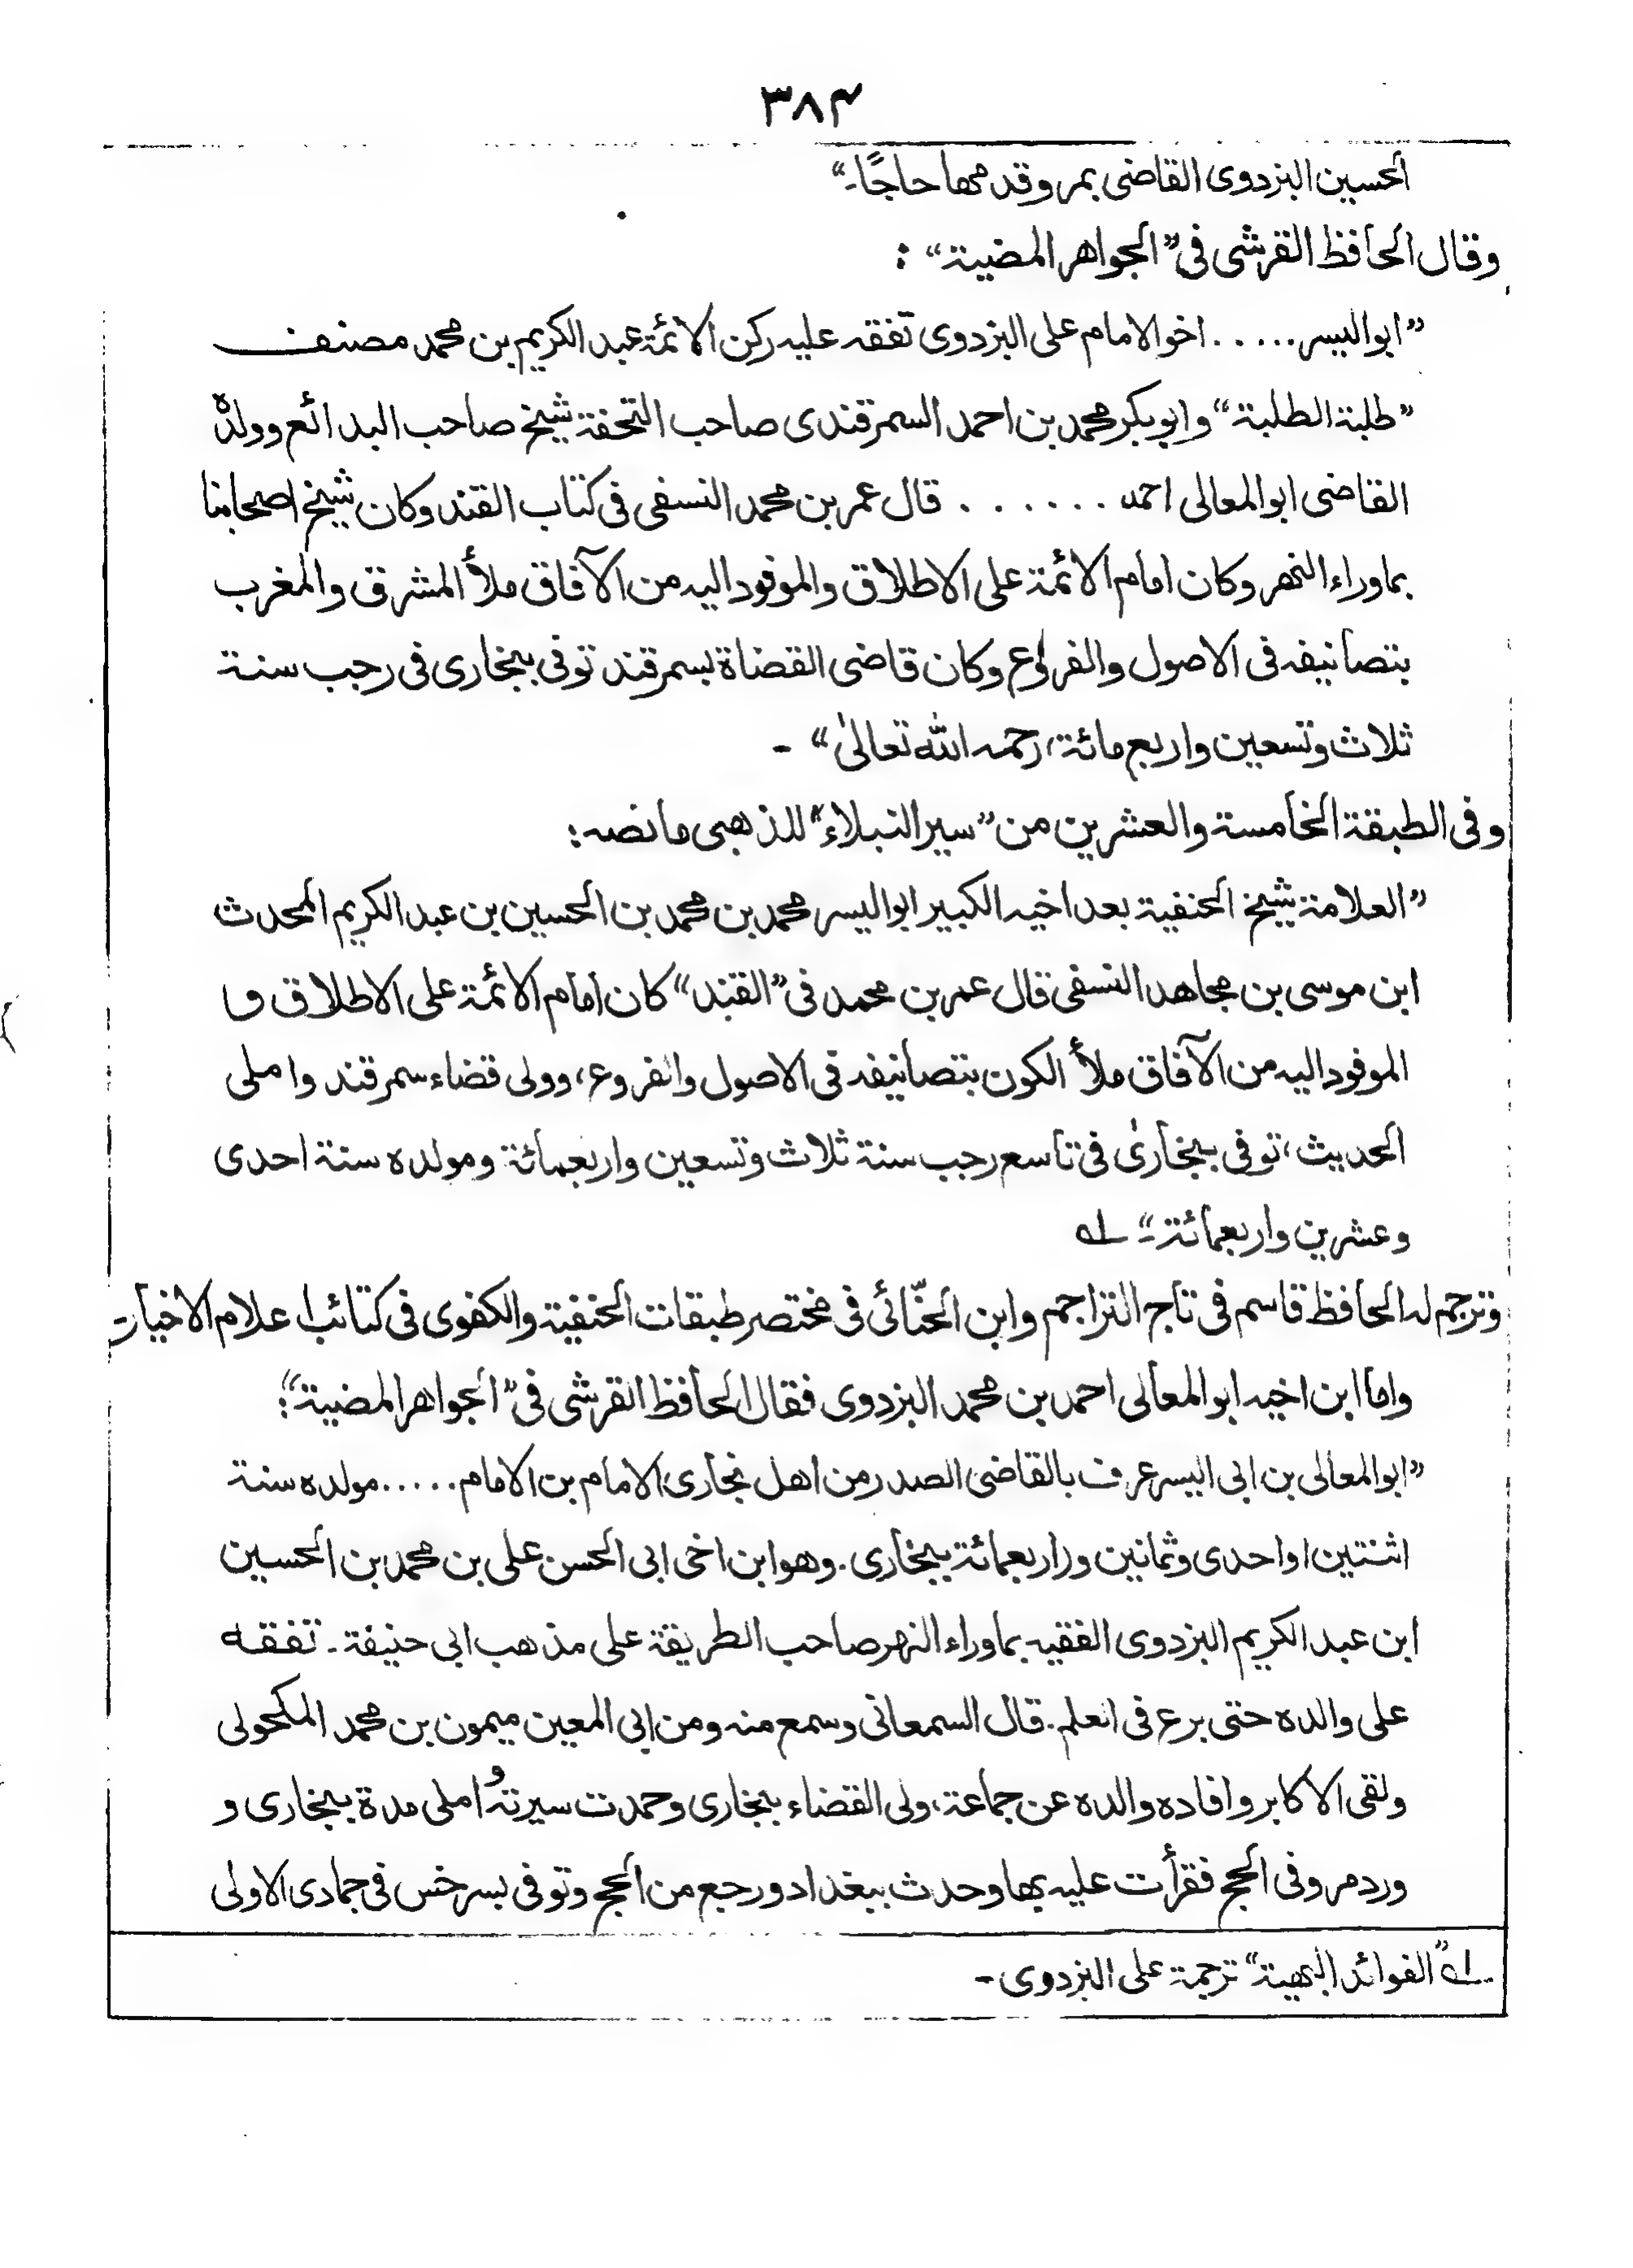 ۳۸۴
الحسين البزدوى القاضى بمرو قدمها حاجًا۔“
وقال الحافظ القرشى فى ”الجواهر المضية“ :
”ابو اليسر..... اخو الامام على البزدوى تفقه عليه ركن الائمة عبد الكريم بن محمد مصنف
”طلبة الطلبة“ وابو بكر محمد بن احمد السمرقندى صاحب التحفة شيخ صاحب البدائع وولدهٗ
القاضى ابو المعالى احمد . . . . . . قال عمر بن محمد النسفى فى كتاب القند وكان شيخ اصحابنا
بماوراء النهر وكان امام الائمة على الاطلاق والموفود اليه من الآفاق ملأ المشرق والمغرب
بتصانيفه فى الاصول والفروع وكان قاضى القضاة بسمرقند توفى ببخارى فى رجب سنة
ثلاث وتسعين واربع مائة، رحمه الله تعالىٰ“ ۔
وفى الطبقة الخامسة والعشرين من ”سير النبلاء“ للذهبى ما نصه:
”العلامة شيخ الحنفية بعد اخيه الكبير ابو اليسر محمد بن محمد بن الحسين بن عبد الكريم المحدث
ابن موسى بن مجاهد النسفى قال عمر بن محمد فى ”القند“ كان امام الائمة على الاطلاق و
الموفود اليه من الآفاق ملأ الكون بتصانيفه فى الاصول والفروع، وولى قضاء سمرقند واملى
الحديث، توفى ببخارىٰ فى تاسع رجب سنة ثلاث وتسعين واربعمائة ومولده سنة احدى
وعشرين واربعمائة۔“ لـه
وترجم له الحافظ قاسم فى تاج التراجم وابن الحنّائى فى مختصر طبقات الحنفية والكفوى فى كتائب اعلام الاخيار
واما ابن اخيه ابو المعالى احمد بن محمد البزدوى فقال الحافظ القرشى فى ”الجواهر المضية“:
”ابو المعالى بن ابى اليسر عرف بالقاضى الصدر من اهل بخارى الامام بن الامام..... مولده سنة
اثنتين او احدى وثمانين واربعمائة ببخارى. وهو ابن اخى ابى الحسن على بن محمد بن الحسين
ابن عبد الكريم البزدوى الفقيه بماوراء النهر صاحب الطريقة على مذهب ابى حنيفة۔ تفقه
على والده حتى برع فى العلم. قال السمعانى وسمع منه ومن ابى المعين ميمون بن محمد المكحولى
ولقى الاكابر وافاده والده عن جماعة، ولى القضاء ببخارى وحمدت سيرتهُ و املى مدة ببخارى و
ورد مرو فى الحج فقرأت عليه بها وحدث ببغداد ورجع من الحج وتوفى بسرخس فى جمادى الاولى
لـه ”الفوائد البهية“ ترجمة على البزدوى ۔